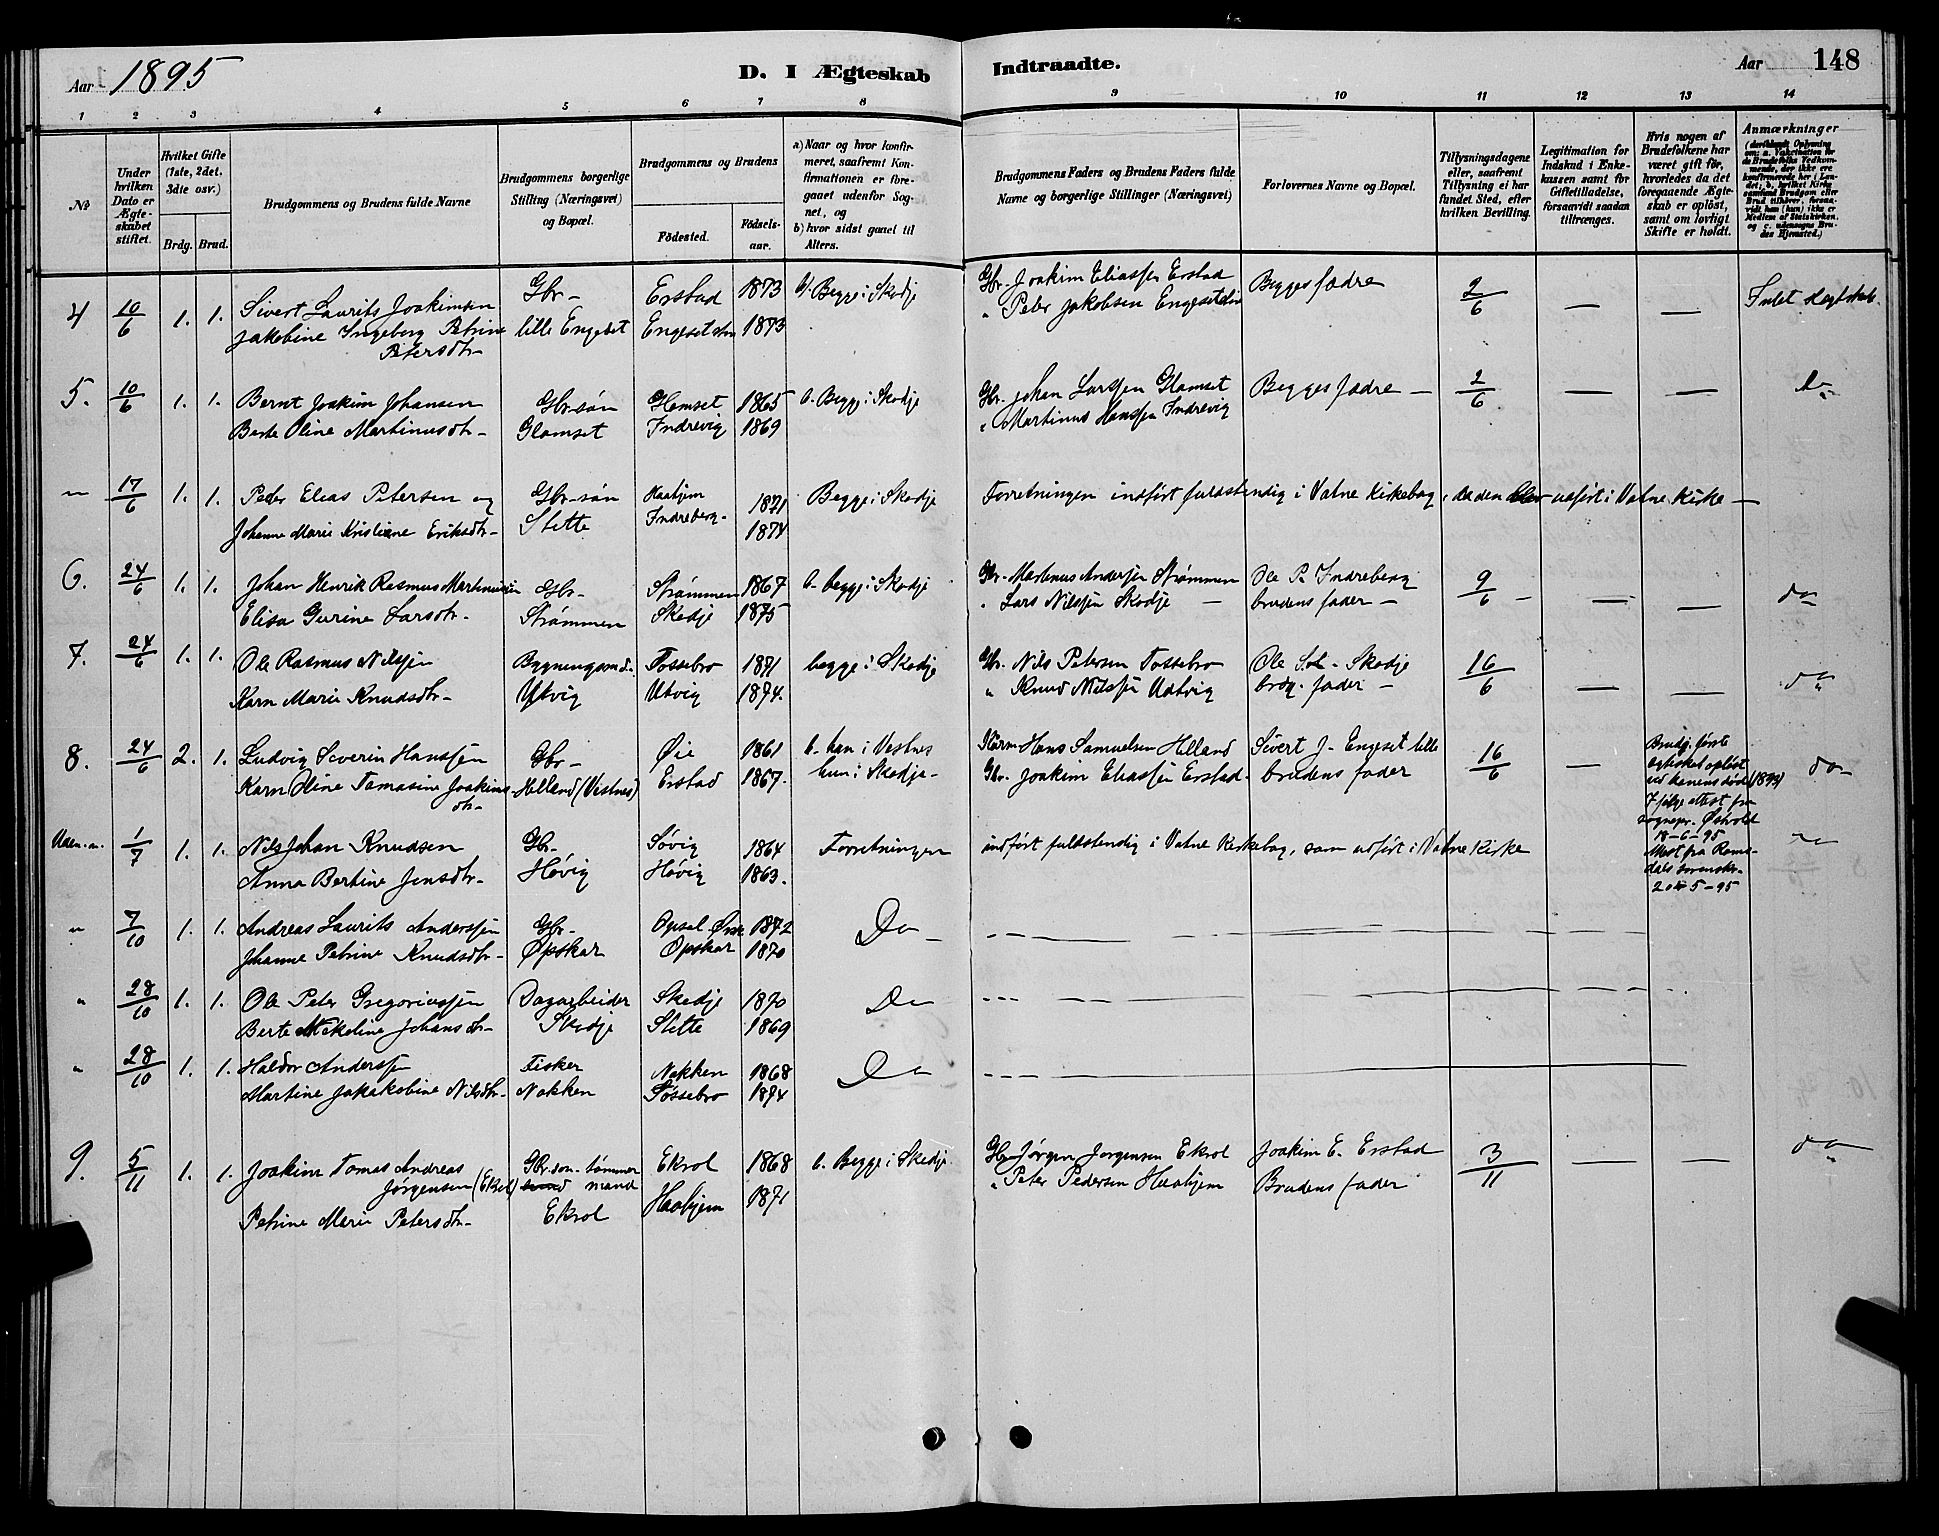 Aar 1895
D. I Ægteskab Indtraadte.
Aar 148
1 2 3 4 5 6 7 8 9 10 11 12 13 14
№
Under hvilken Dato er Ægteskabet stiftet.
Hvilket Gifte (1ste, 2det. 3die osv.)
Brdg. Brud.
Brudgommens og Brudens fulde Navne
Brudgommens borgerlige Stilling (Næringsvei) og Bopæl.
Brudgommens og Brudens
Födested. Födselsaar.
a) Naar og hvor konfirmeret, saafremt Konfirmationen er foregaaet udenfor Sognet, og
b) hvor sidst gaaet til Alters.
Brudgommens Faders og Brudens Faders fulde Navne og borgerlige Stillinger (Næringsvei)
Forlovernes Navne og Bopæl.
Tillysningsdagene eller, saafremt Tillysning ei har fundet Sted, efter hvilken Bevilling.
Legitimation for Indskud i Enkekassen samt for Giftetilladelse, forsaavidt saadan tiltrænges.
Hvis nogen af Brudefolkene har været gift för, hvorledes da det foregaaende Ægteskab er oplöst, samt om lovligt Skifte er holdt.
Anmærkninger
4 10/6 1. 1. Sivert Laurits Joakimsen Gbr- Erstad 1873 b. Begge i Skodje Gbr. Joakim Eliassen Erstad Begges fædre 2/6 — —
Jakobine Ingeborg Petrine Petersdtr- lille Engeset Engeset 1873 " Peter Jakobsen Engeset
5. 10/6 1. 1. Bernt Joakim Johansen Gbr-søn Glomset 1865 b. Begge i Skodje Gbr. Johan Larssen Glomset Begges fædre — 2/6 — — do
Berte Oline Martinusdtr- Glomset Indrevig 1869 " Martinus Hanssen Indrevig
" 17/6 1. 1. Peder Elias Petersen og Gbr-søn Haahjem 1871 Begge i Skodje Forretningen indført fuldstendig i Vatne Kirkebog, da den blev udført i Vatne Kirke —
Johanne Marie Kristiane Eriksdtr- Stette Indreberg- 1874
6. 24/6 1. 1. Johan Henrik Rasmus Martinussen Gbr- Strømmen 1867 b- begge i Skodje Gbr- Martinus Andersen Strømmen Ole P. Indreberg 9/6 — — — do
Elisa Gurine Larsdtr- Strømmen Skodje 1875 " Lars Nilssen Skodje — brudens fader —
7. 24/6 1. 1. Ole Rasmus Nilssen Bygningsmd. Fossebro 1871 begge i Skodje Gbr. Nils Petersen Fossebro Ole Sol- Skodje 16/6 — — do
Karn Marie Knudsdtr- Utvig Utvig 1874. " Knud Nilssen Udtvig brdg. fader —
8. 24/6 2. 1. Ludvig Severin Hanssen Gbr- Øie 1861 b- han i Vestnes Kårm- Hans Samuelsen Helland Sivert J- Engeset lille 16/6 — do-
Karn Oline Tomasine Joakimsdtr- Helland (Vestnes) Erstad 1867. hun i Skodje- Gbr. Joakim Eliassen Erstad- brudens fader
Brudg. første egteskab opløst ved konens død
18-6-95
20-5-95
1/7 1. 1. Nils Johan Knudsen Gbr- Søvig 1864 Forretningen indført fuldstendig i Vatne Kirkebog, som udført i Vatne Kirke
Anna Bertine Jensdtr- Høvig Høvig 1863.
" 7/10 1. 1. Andreas Laurits Anderssen Gbr- Opsal 1872 Do-
Johanne Petrine Knudsdtr- Opskar Opskar 1870
" 28/10 1. 1. Ole Peter Gregoriussen Dagarbeider Skodje 1870 Do
Berte Mikeline Johansdtr- Skodje Stette 1869
" 28/10 1. 1. Haldor Anderssen Fisker Nakken 1868 Do
Martine Jakakobine Nilsdtr- Nakken Fossebro 1874
9. 5/11 1. 1. Joakim Tomas Andreas Jørgensen (Ekrol) Gbr.søn- tømmermand Ekrol 1868 b. Begge i Skodje. Gbr Jørgen Jørgensen Ekrol Joakim E. Erstad 3/11 — — do
Petrine Marie Petersdtr- Ekrol Haahjem 1871 " Peter Pedersen Haahjem Brudens fader